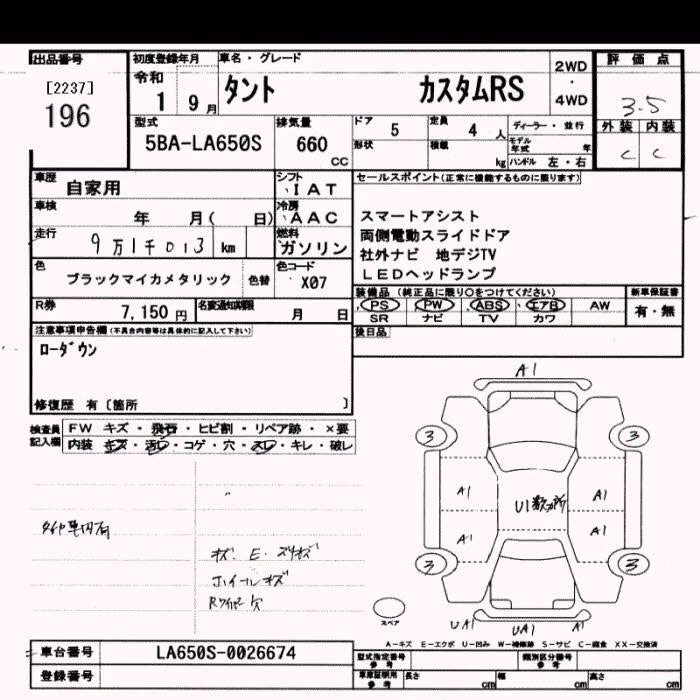 出品番号
[2237]
196
初度登録年月
令和
1 9 月
車名・グレード
タント カスタムRS
2WD
・
4WD
評価点
3.5
外装 内装
C C
型式
5BA-LA650S
排気量
660
CC
ドア 5
形状
定員 4 人
積載 kg
ディーラー・並行
モデル年式 年
ハンドル 左・右
車歴 自家用
シフト
IAT
車検 年 月( 日)
冷房
AAC
走行 9万1千013 km
燃料
ガソリン
色 ブラックマイカメタリック 色替
色コード
X07
R券 7,150 円
名変通知期限 月 日
セールスポイント(正常に機能するものに限ります)
スマートアシスト
両側電動スライドドア
社外ナビ 地デジTV
LEDヘッドランプ
装備品(純正品に限り○をつけてください)
PS PW ABS エアB AW
SR ナビ TV カワ
新車保証書
有・無
後日品
注意事項申告欄(不具合内容等は具体的に記入して下さい)
ローダウン
修復歴 有〔箇所 〕
検査員記入欄
FW キズ・飛石・ヒビ割・リペア跡・×要
内装 キズ・汚レ・コゲ・穴・スレ・キレ・破レ
キズ E・スリキズ
ホイールキズ
Rワイパー欠
A1
3 3
A1 U1数ヶ所 A1
A1 A1
3 3
スペア
UA1 UA1 A1
A-キズ E-エクボ U-凹み W-補修跡 S-サビ C-腐食 XX-交換済
車台番号 LA650S-0026674
登録番号
型式指定番号
参考
類別区分番号
参考
車庫証明用
参考
長さ cm 幅 cm 高さ cm